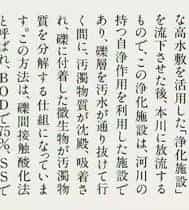 な高水敷を活用した、この浄化施設
を流下させた後、本川に放流する
もので、この浄化施設は、河川の
持つ自浄作用を利用した施設で
あり、礫層を汚水が通り抜けて行
く間に、汚濁物質が沈殿、吸着さ
れ、礫に付着した微生物が汚濁物
質を分解する仕組になっていま
す。この方法は、礫間接触酸化法
と呼ばれ、BODで75%、SSで